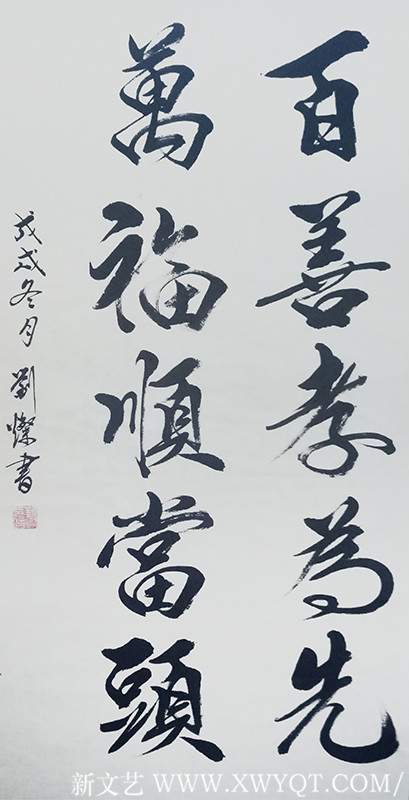 百善孝為先
萬福順當頭
戊戌冬月劉燦書
新文艺 WWW.XWYQT.COM/